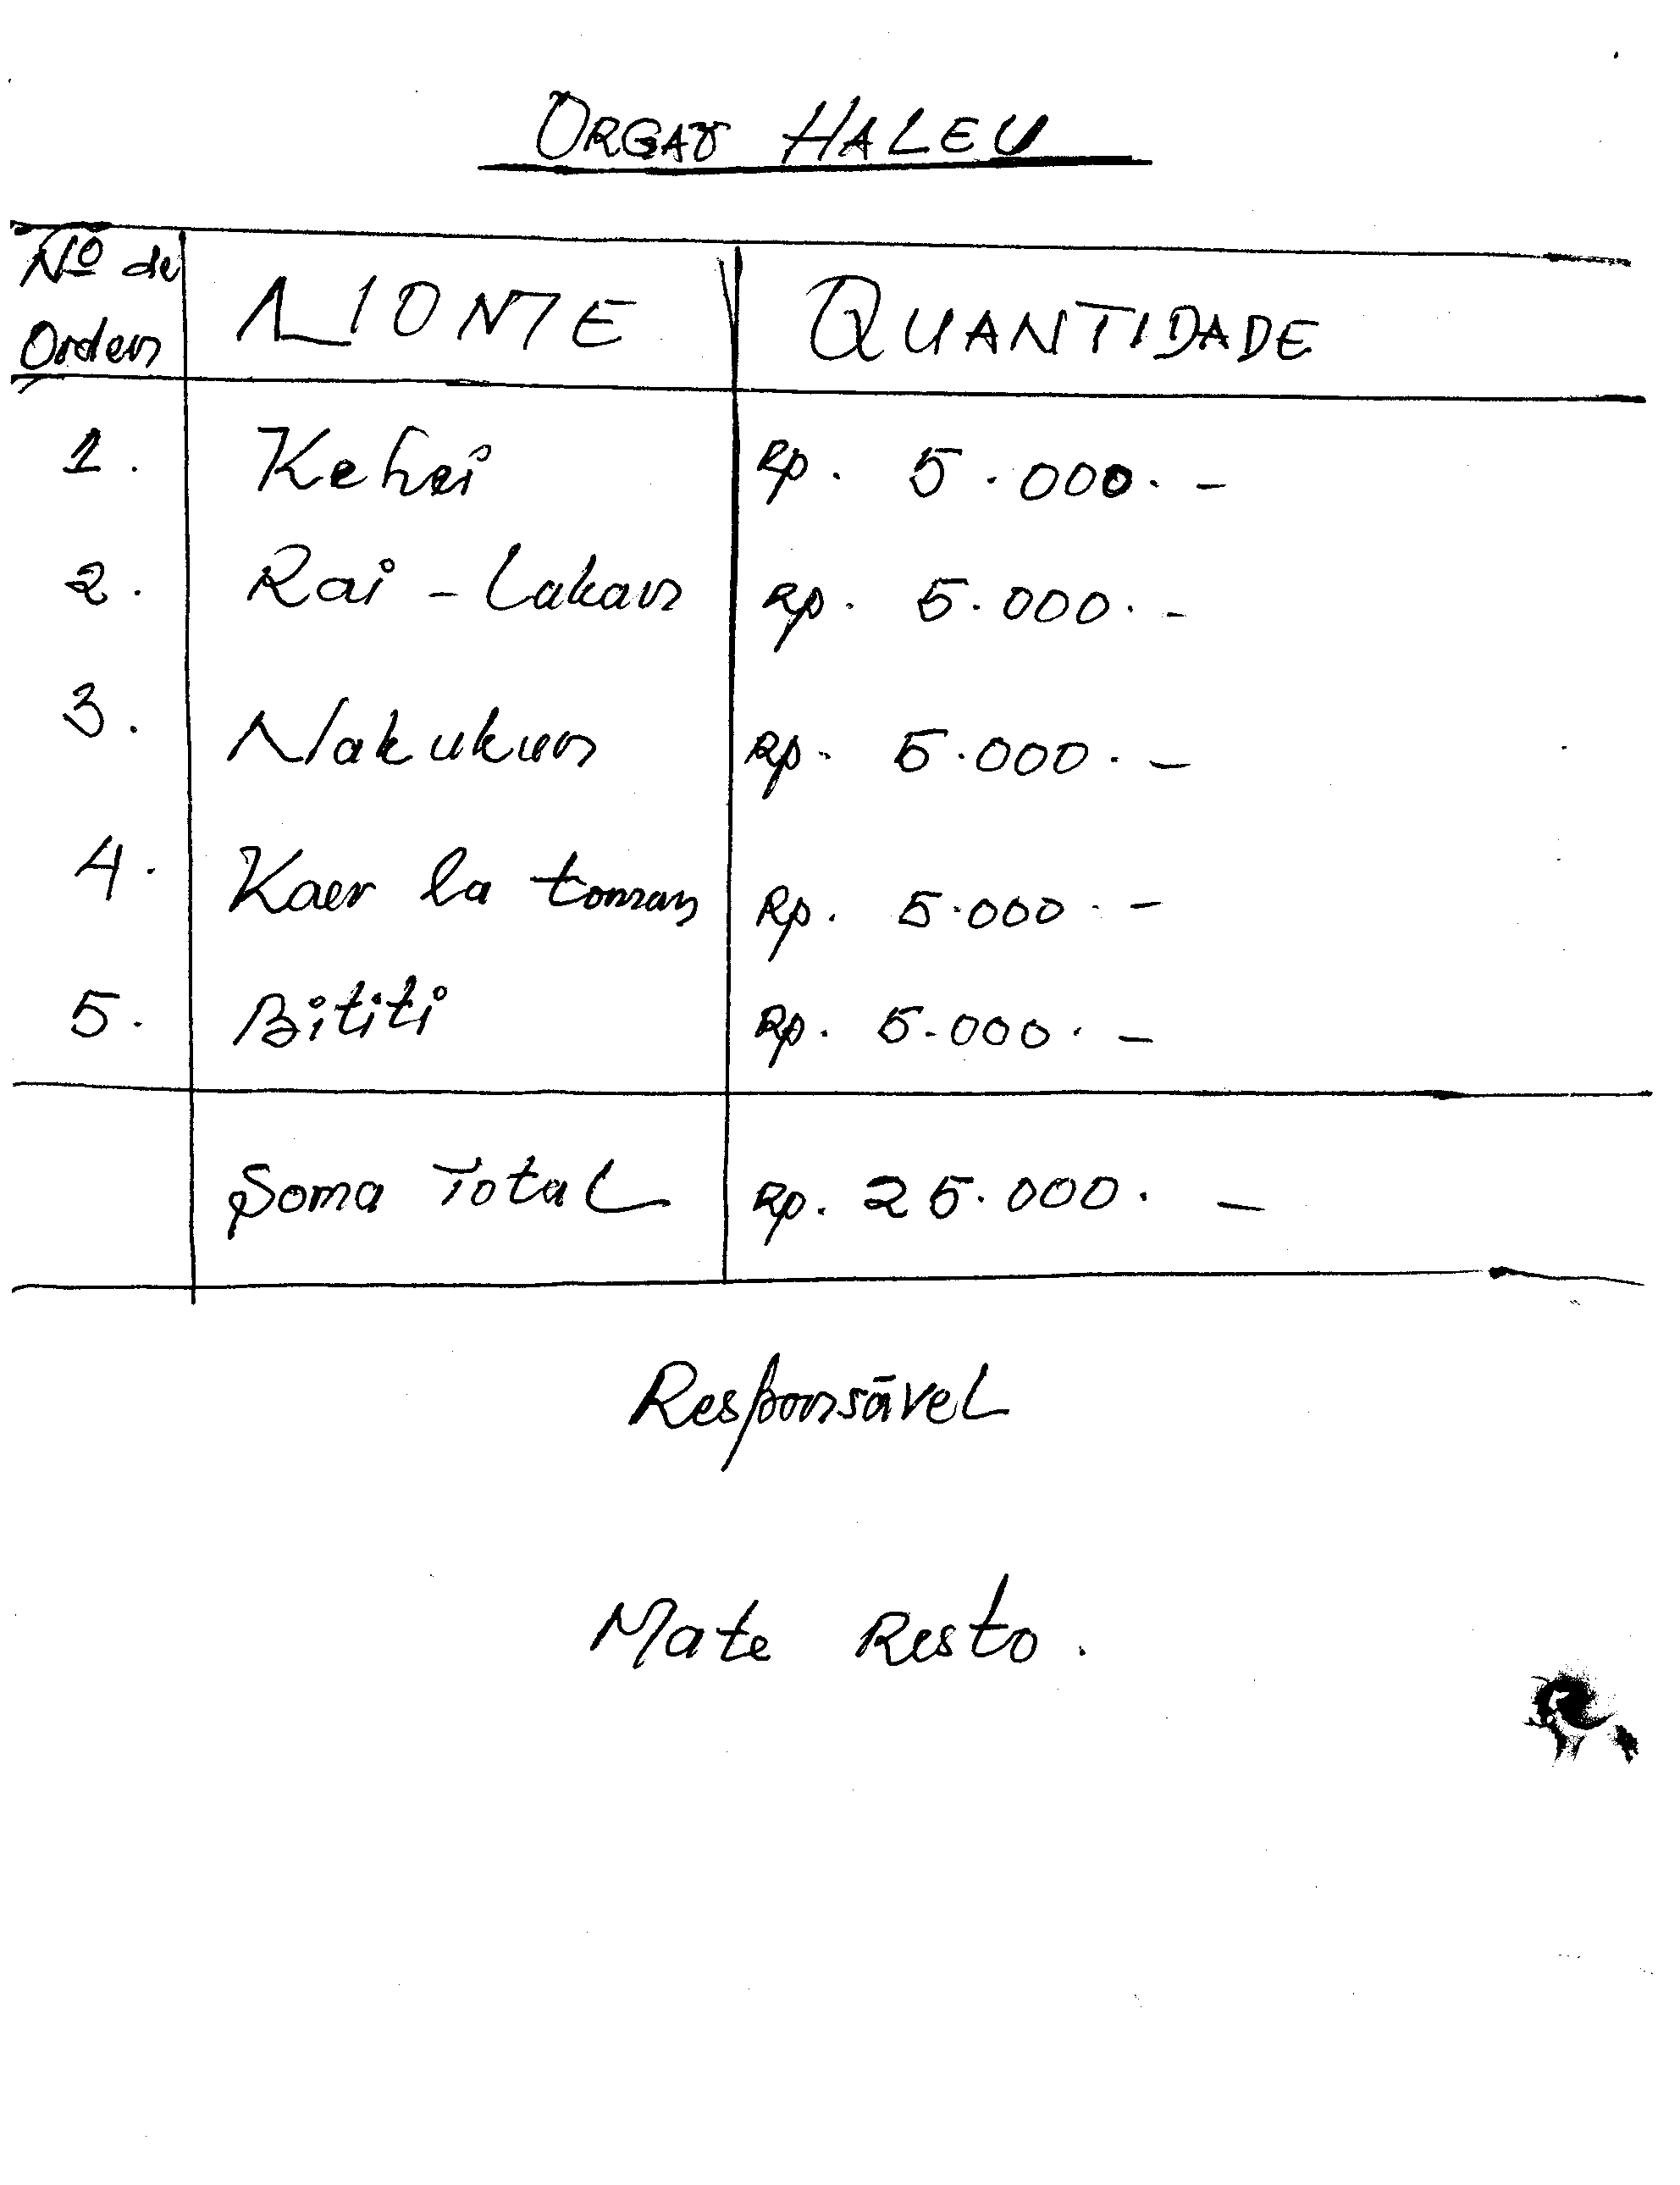 ORGAO HALEU
Nº de Orden LIONTE QUANTIDADE
1. Kehei Rp. 5.000.-
2. Rai - Lakan Rp. 5.000.-
3. Nakukun Rp. 5.000.-
4. Kaer la toman Rp. 5.000.-
5. Bititi Rp. 5.000.-
Soma Total Rp. 25.000.-
Responsável
Mate Resto.